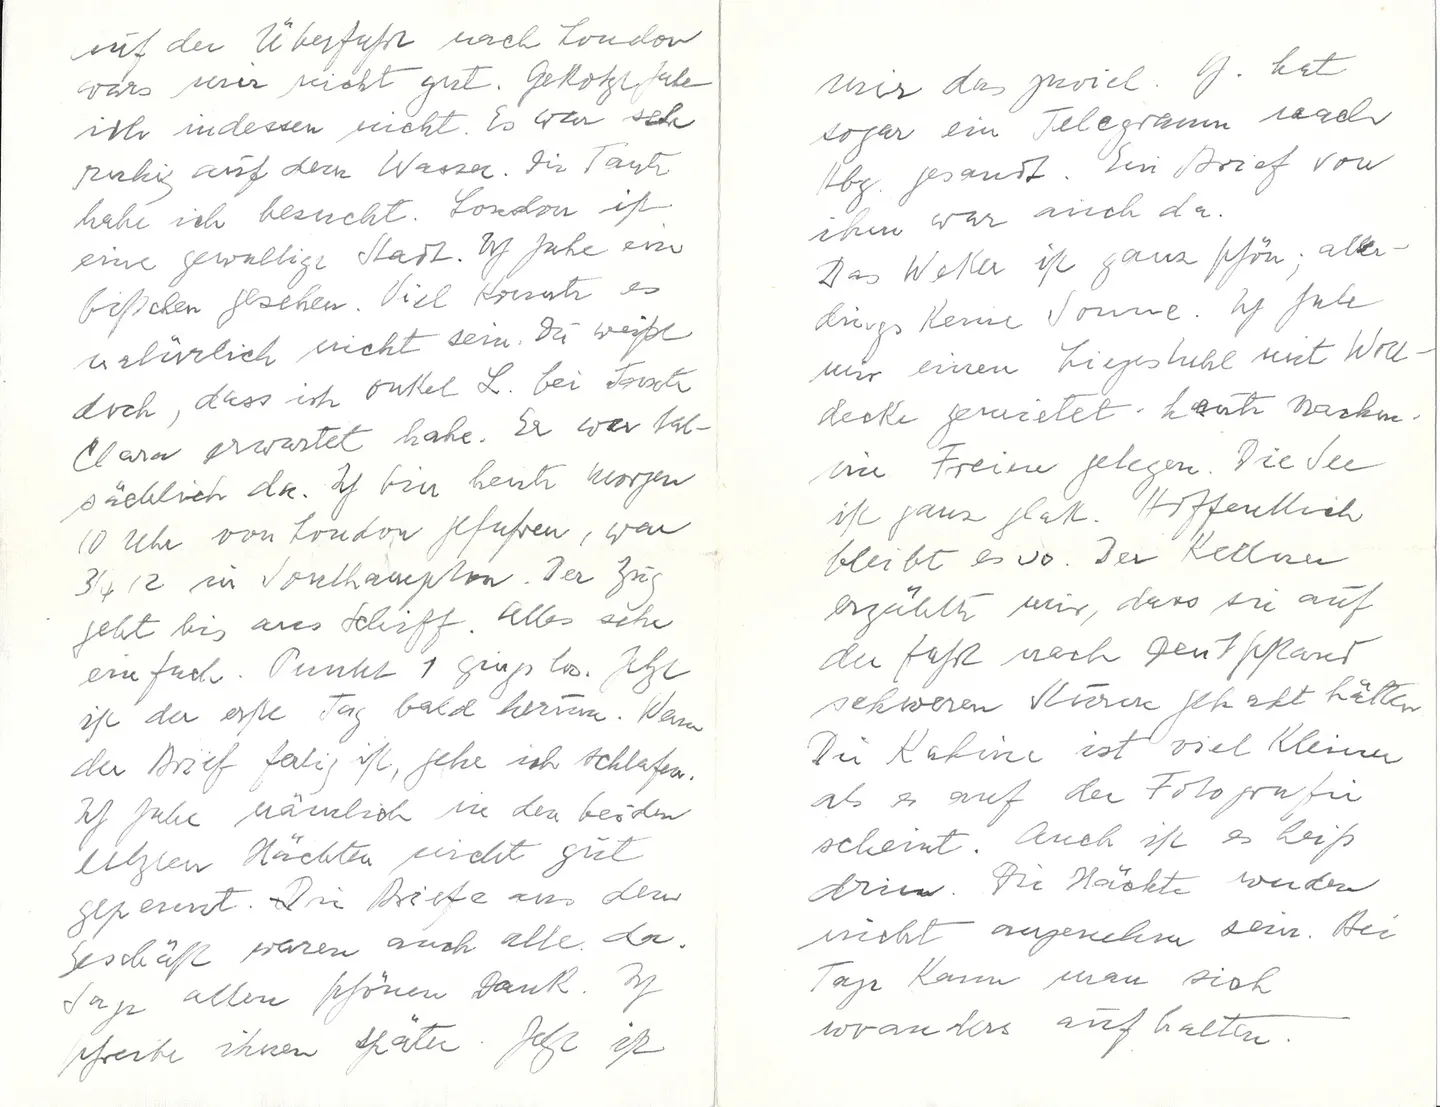 auf der Überfahrt nach London
wars mir nicht gut. Gekotzt habe
ich indessen nicht. Es war sehr
ruhig auf dem Wasser. Die Tante
habe ich besucht. London ist
eine gewaltige Stadt. Ich habe ein
bißchen gesehen. Viel konnte es
natürlich nicht sein. Du weißt
doch, dass ich Onkel L. bei Tante
Clara erwartet habe. Er war tat-
sächlich da. Ich bin heute Morgen
10 Uhr von London gefahren, war
3/4 12 in Southampton. Der Zug
geht bis ans Schiff. Alles sehr
einfach. Punkt 1 gings los. Jetzt
ist der erste Tag bald herum. Wenn
der Brief fertig ist, gehe ich schlafen.
Ich habe nämlich in den beiden
letzten Nächten nicht gut
gepennt. Die Briefe aus dem
Geschäft waren auch alle da.
Sage allen schönen Dank. Ich
schreibe ihnen später. Jetzt ist
mir das zuviel. G. hat
sogar ein Telegramm nach
Hbg. gesandt. Ein Brief von
ihm war auch da.
Das Wetter ist ganz schön; aller-
dings keine Sonne. Ich habe
mir einen Liegestuhl mit Woll-
decke gemietet. heute Nachm.
im Freien gelegen. Die See
ist ganz glatt. Hoffentlich
bleibt es so. Der Kellner
erzählte mir, dass sie auf
der Fahrt nach Deutschland
schweren Sturm gehabt hätten
Die Kabine ist viel kleiner
als es auf der Fotografie
scheint. Auch ist es heiß
drin. Die Nächte werden
nicht angenehm sein. Bei
Tage kann man sich
woanders aufhalten.